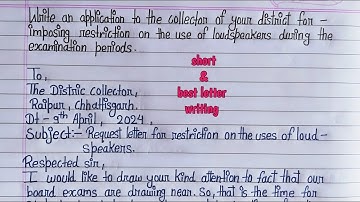 Write an application to the collector of your district for -
imposing restriction on the use of loudspeakers during the
examination periods.
short
&
best letter
writing
To,
The Distric collector,
Raipur, Chhatisgarh.
Dt - 9th April, 2024.
Subject:- Request letter for restriction on the uses of loud-
speakers.
Respected sir,
I would like to draw your kind attention to fact that our
board exams are drawing near. So, that is the time for